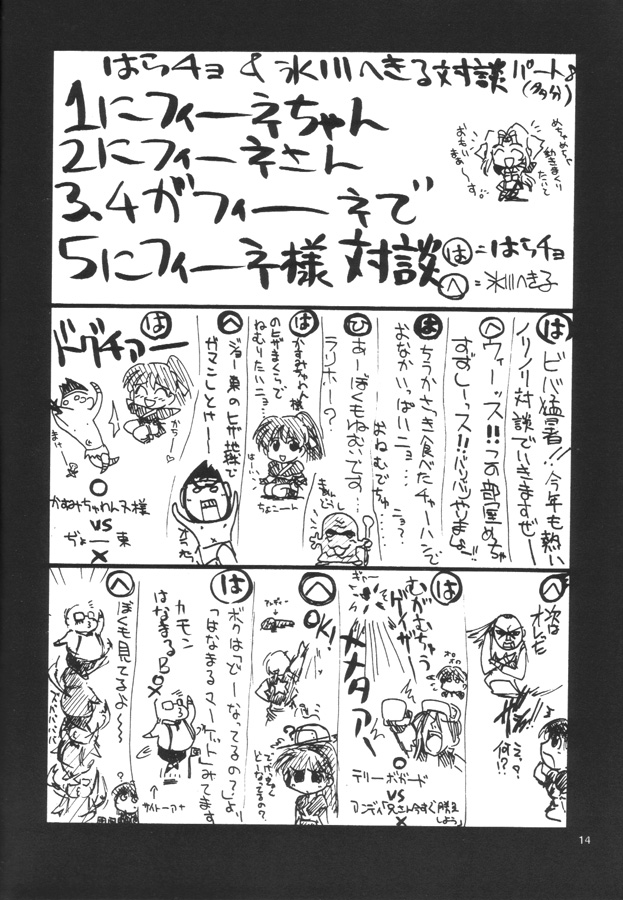 はらチョ & 氷川へきる対談パート8
(多分)
1にフィーネちゃん
2にフィーネさん
3、4がフィーネで
5にフィーネ様対談
めちゃめちゃ
動きまくり
たいて
おもい
まぁ〜す。
は=はらチョ
へ=氷川へき子
は ビバ猛暑!!今年も熱い
ノリノリ対談でいきますぜー
へ ウィーッス!!この部屋めちゃ
すずしーッス!!
は ちうかさっき食べたチャーハンで
おなかいっぱいニョ…
おねむでちゅ…
ニョ?
ひ あーぼくもねむいです…
ラリホー?
は かすみちゃわん様
のヒザまくらで
ねむりたいニョ…
はーい
ちょこーん
へ ジョー東のヒザ地獄で
ガマンしとけや——
は ドグチアァー
かち♡
まけ
○
かすみちゃわん様
VS
ぢょー東
×
へ 次は
オレだ
えっ?
何!?
は むがむちゅう
ゲイザー
ギャー
ポポ
へ メタァー
○
テリーボガード
VS
アンディ「兄さん今すぐ脱出しよう」
×
へ OK!
アンディー
どーなってるの?
は ボクは「どーなってるの?」より
「はなまるマーケット」みてます
カモン
はなまるB
○
×
↑
サイトーアナ
へ ぼくも見てるよ〜〜
14